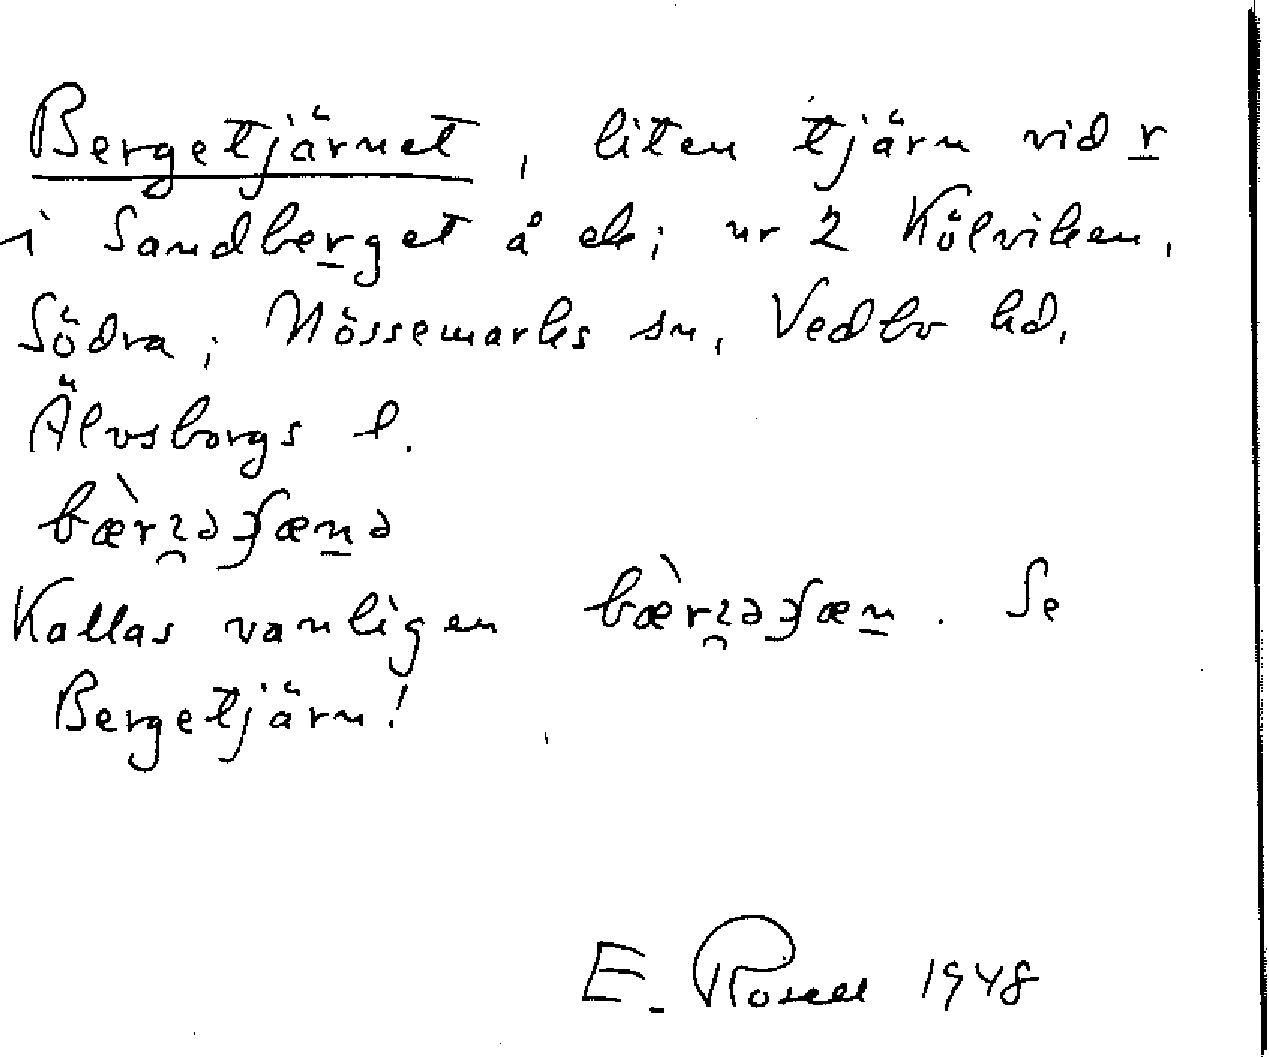 Bergetjärnet, liten tjärn vid r
i Sandberget å ek; nr 2 Kölviken,
Södra; Nössemarks sn, Vedbo hd,
Älvsborgs l.
Kallas vanligen . Se
Bergetjärn!
E. Rosell 1948